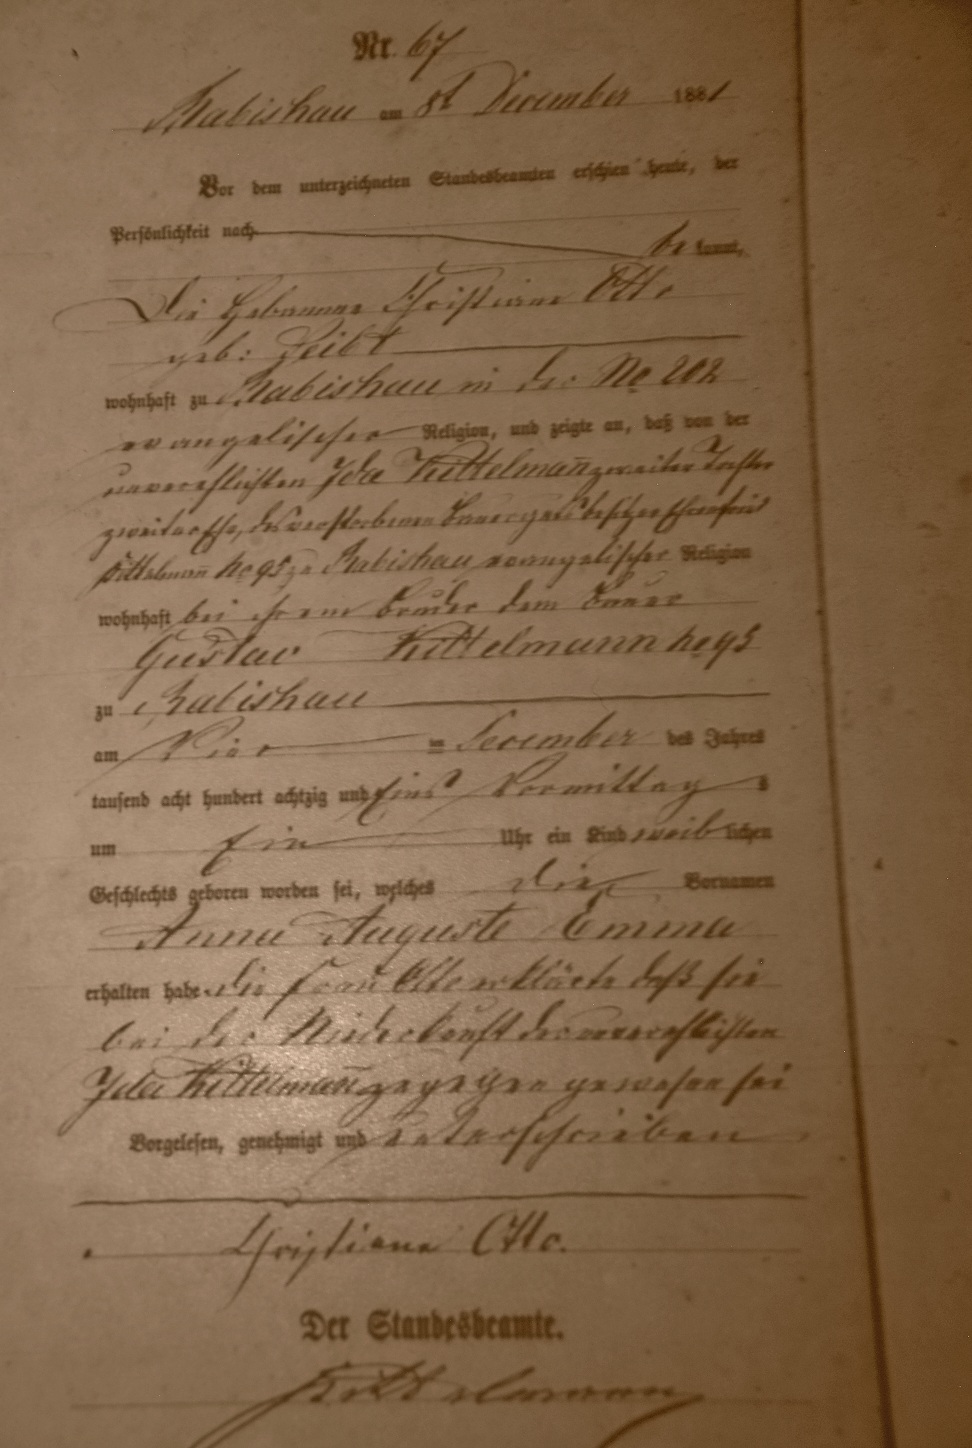 Nr. 67
Rabishau am 8t December 1881
Vor dem unterzeichneten Standesbeamten erschien heute, der
Persönlichkeit nach be kannt,
Die Hebamme Christiane Otto
geb: Seibt
wohnhaft zu Rabishau in der No 202
evangelischer Religion, und zeigte an, daß von der
unverehlichten Ida Kittelmann zweiter Tochter
zweiter Ehe, des verstorbenen Bauergutsbesitzer Ehrenfried
Kittelmann No 95 zu Rabishau evangelischer Religion
wohnhaft bei ihrem Bruder dem Bauer
Gustav Kittelmann No 95
zu Rabishau
am Vier ten December des Jahres
tausend acht hundert achtzig und Eins Vormittag s
um Ein Uhr ein Kind weib lichen
Geschlechts geboren worden sei, welches die Vornamen
Anna Auguste Emma
erhalten habe. die Frau Otto erklärte daß sie
bei der Niederkunft der unverehlichten
Ida Kittelmann zugegen gewesen sei
Vorgelesen, genehmigt und unterschrieben
Christiane Otto.
Der Standesbeamte.
Kittelmann